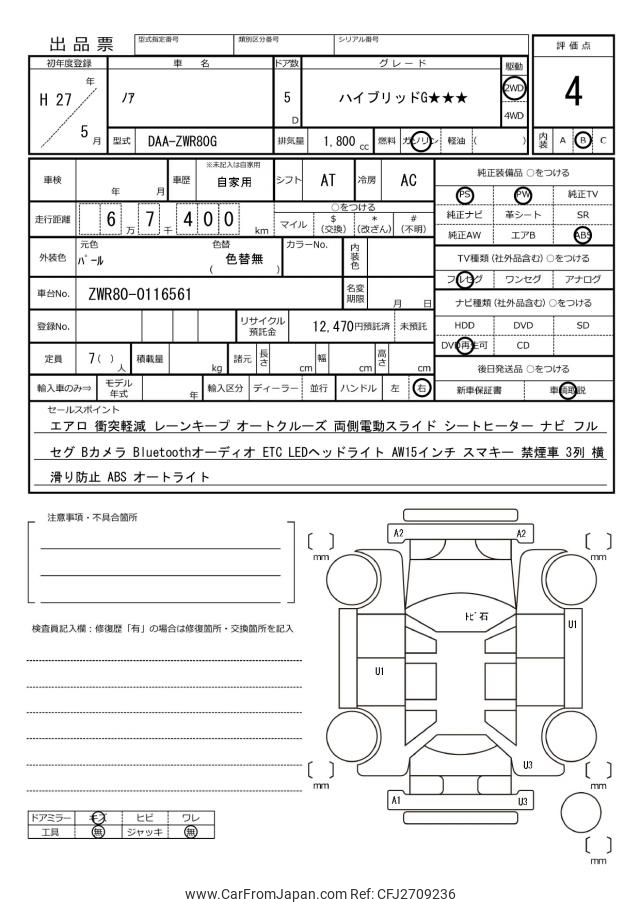 出品票
型式指定番号 類別区分番号 シリアル番号
評価点
4
内装 A B C
初年度登録 車名 ドア数 グレード 駆動
H 27 年 5 月
ノア
5 D
ハイブリッドG★★★
2WD
4WD
型式 DAA-ZWR80G 排気量 1,800 cc 燃料 ガソリン 軽油 ( )
車検 年 月 車歴 ※未記入は自家用 自家用 シフト AT 冷房 AC
走行距離 6 万 7 千 4 0 0 km
○をつける
マイル $ (交換) * (改ざん) # (不明)
外装色 元色 パール 色替 色替無 ( ) カラーNo. 内装色
車台No. ZWR80-0116561 名変期限 月 日
登録No. リサイクル預託金 12,470円預託済 未預託
定員 7( )人 積載量 kg 諸元 長さ cm 幅 cm 高さ cm
輸入車のみ⇒ モデル年式 年 輸入区分 ディーラー 並行 ハンドル 左 右
純正装備品 ○をつける
PS PW 純正TV
純正ナビ 革シート SR
純正AW エアB ABS
TV種類 (社外品含む) ○をつける
フルセグ ワンセグ アナログ
ナビ種類 (社外品含む) ○をつける
HDD DVD SD
DVD再生可 CD
後日発送品 ○をつける
新車保証書 車輌取説
セールスポイント
エアロ 衝突軽減 レーンキープ オートクルーズ 両側電動スライド シートヒーター ナビ フル
セグ Bカメラ Bluetoothオーディオ ETC LEDヘッドライト AW15インチ スマキー 禁煙車 3列 横
滑り防止 ABS オートライト
注意事項・不具合箇所
検査員記入欄：修復歴「有」の場合は修復箇所・交換箇所を記入
A2 A2
mm mm
トビ石
U1
U1
U3
mm mm
A1 U3
mm
ドアミラー キズ ヒビ ワレ
工具 無 ジャッキ 無
www.CarFromJapan.com Ref: CFJ2709236